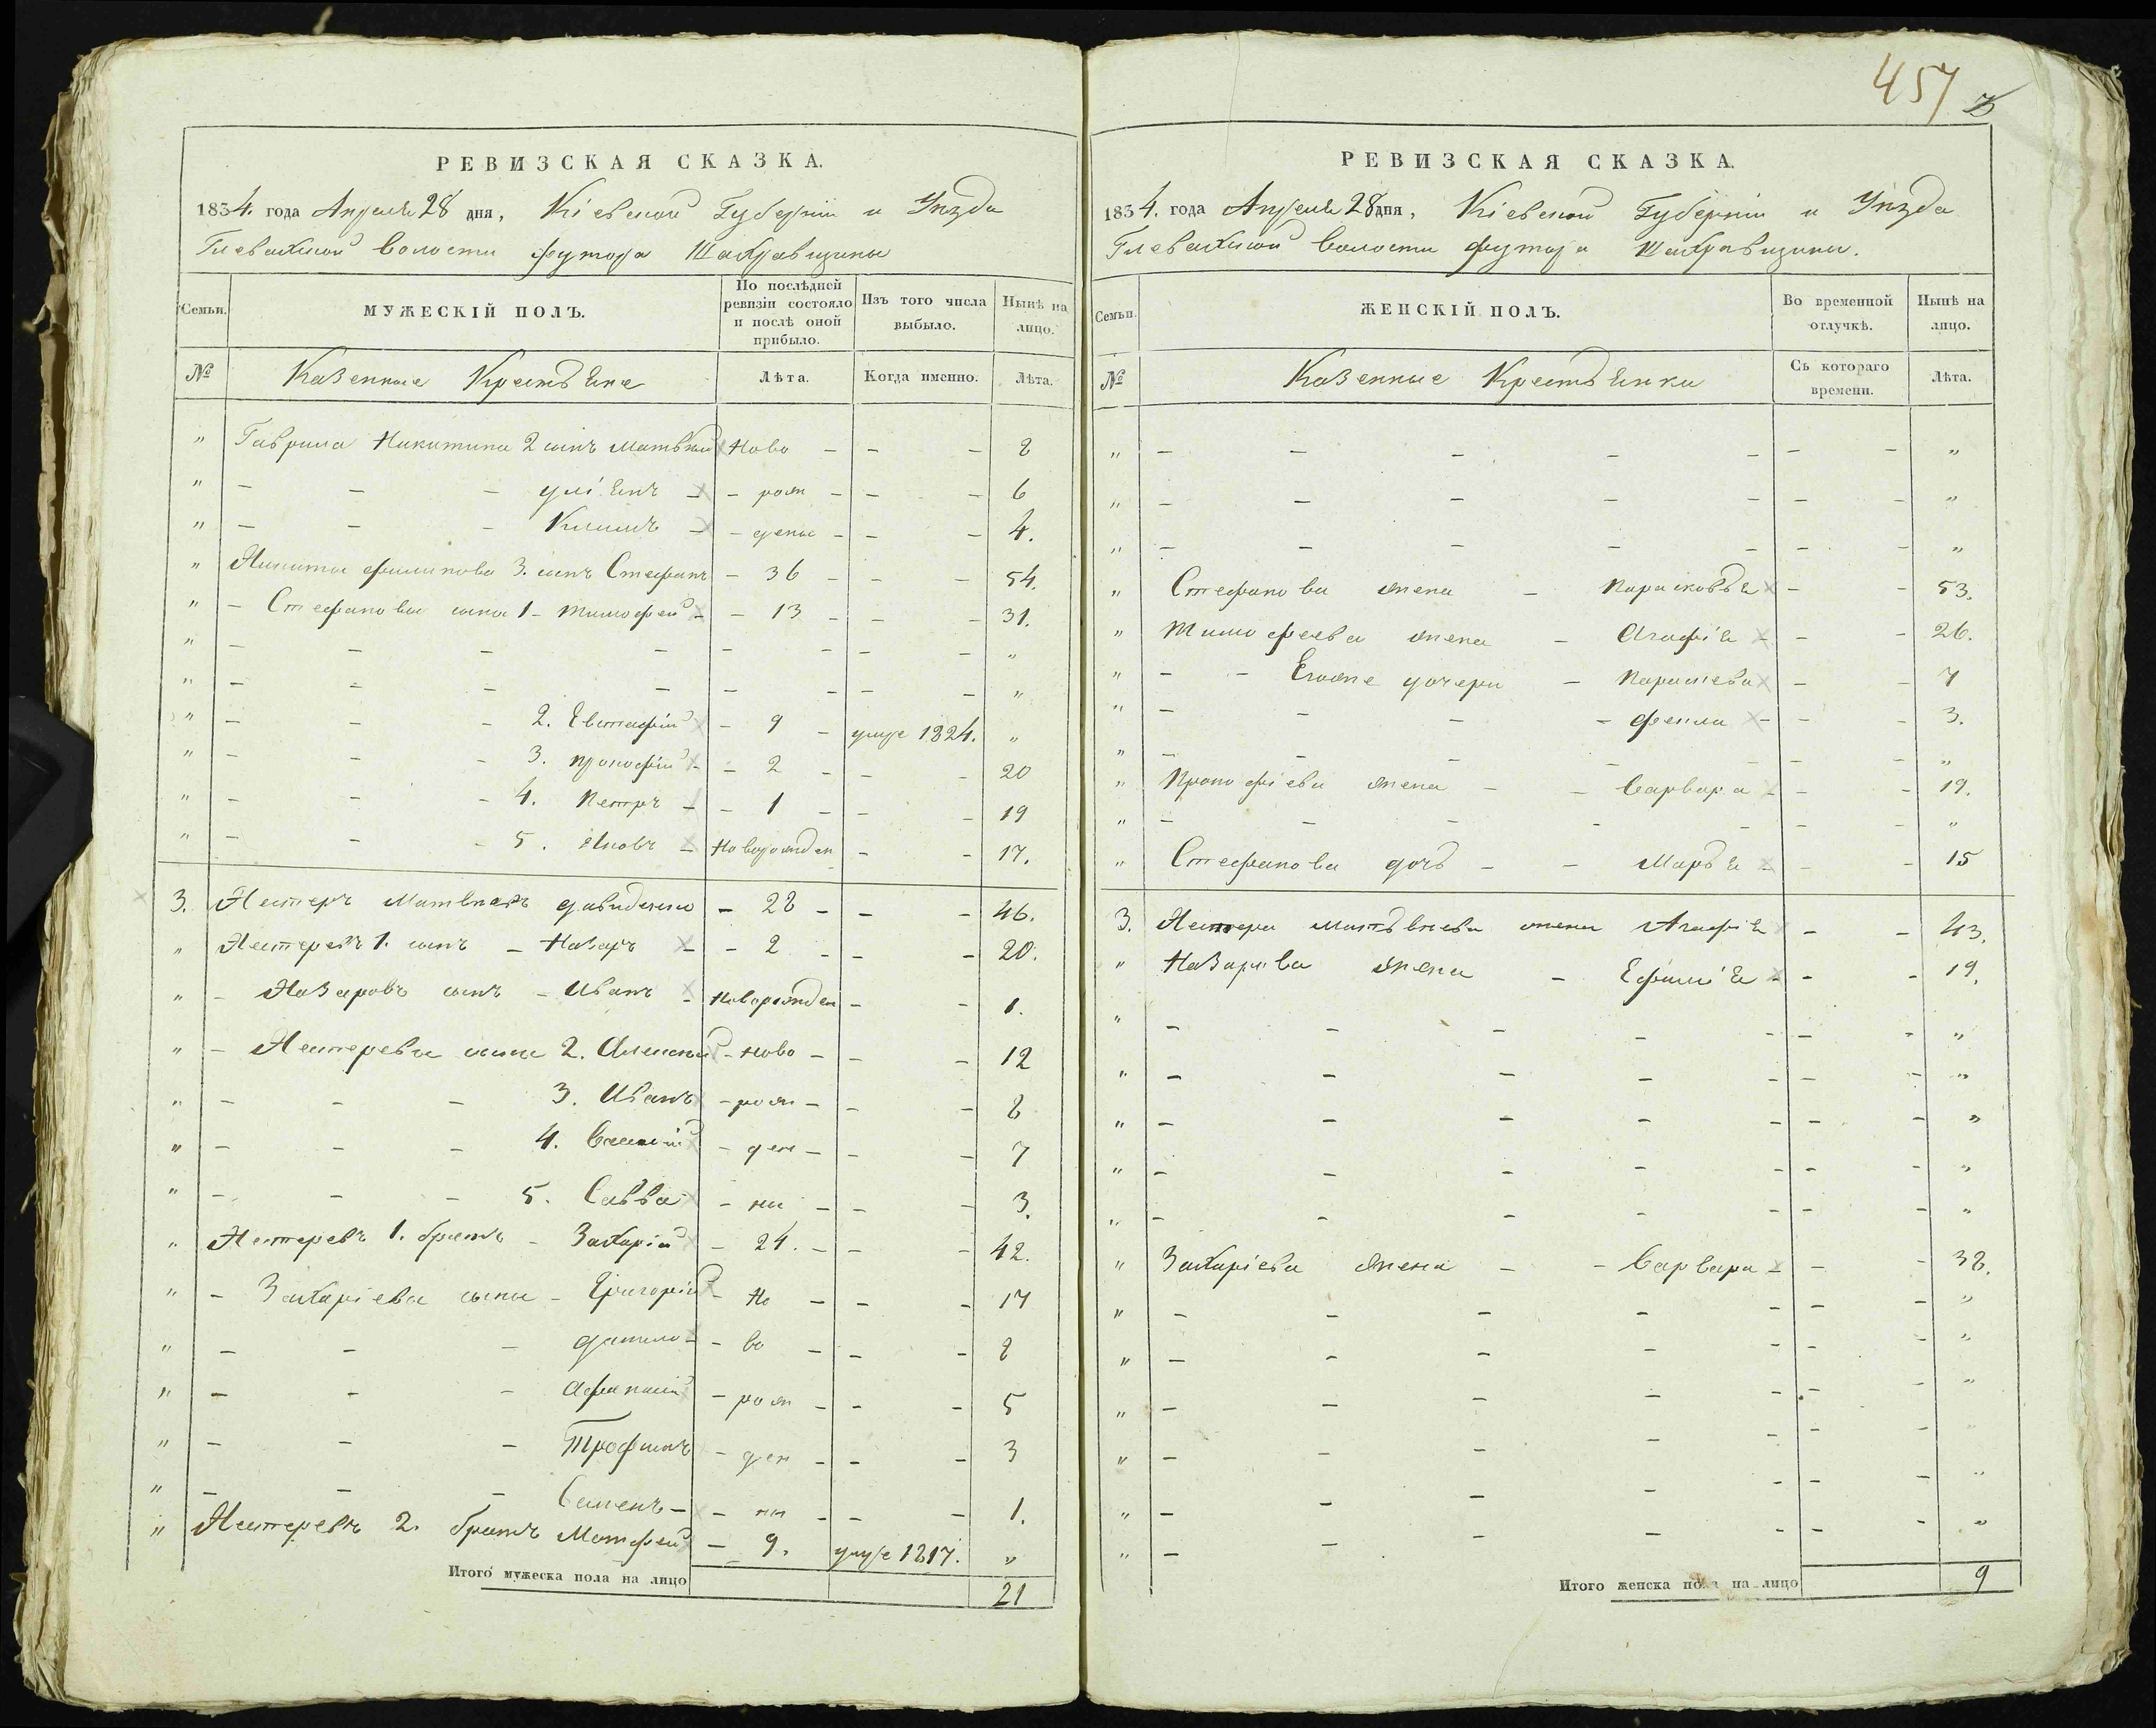 457
РЕВИЗСКАЯ СКАЗКА.
1834. года Апреля 28 дня, Кіевской Губерніи и Уѣзда
Глевахской Волости футора Шахравщины
Семьи.
МУЖЕСКІЙ ПОЛЪ.
По послѣдней ревизіи состояло и послѣ оной прибыло.
Изъ того числа выбыло.
Нынѣ на лицо.
№ Казенные Крестьяне Лѣта. Когда именно. Лѣта.
" Гаврила Никитина 2 сынъ Матвѣй Ново - - - 8
" - - - уліянъ - - рож - - - 6
" - - - Климъ - - дены - - - 4.
" Никиты филипова 3. сынъ Стефанъ - 36 - - - 54.
" - Стефановы сыны 1 - Тимофей - - 13 - - - 31.
" - - - - - - - - "
" - - - - - - - - "
" - - - 2. Евстафій - 9 - умре 1824. "
" - - - 3. прокофій - - 2 - - - 20
" - - - 4. Петръ - - 1 - - - 19
" - - - 5. Яковъ - Новорожден - - 17.
3. Нестеръ Матвѣевъ давиденко - 28 - - - 46.
" Нестеревъ 1. сынъ - Назаръ - - 2 - - - 20.
" - Назаровъ сынъ - Иванъ - Новорожден - - 1.
" - Нестеревы сыны 2. Алексей - ново - - - 12
" - - - 3. Иванъ - рож - - - 8
" - - - 4. Василій - ден - - - 7
" - - - 5. Савва - ны - - - 3.
" Нестеревъ 1. братъ - Захарій - 24. - - - 42.
" - Захаріевы сыны - Григорій - Но - - - 17
" - - - данило - - во - - - 8
" - - - Афанасій - рож - - - 5
" - - - Трофимъ - ден - - - 3
" - - - Семенъ - - ны - - - 1.
" Нестеревъ 2. братъ Матфей - 9. умре 1817. "
Итого мужеска пола на лицо 21
РЕВИЗСКАЯ СКАЗКА.
1834. года Апреля 28 дня, Кіевской Губерніи и Уѣзда
Глевахской Волости футора Шахравщины.
Семьи.
ЖЕНСКІЙ ПОЛЪ.
Во временной отлучкѣ.
Нынѣ на лицо.
№ Казенные Крестьянки Съ котораго времени. Лѣта.
" - - - - - - - "
" - - - - - - - "
" - - - - - - - "
" Стефанова жена - Парасковья - - 53.
" Тимофеева жена - Агафія - - - 26.
" - - Егоже дочери - Парасковія - - 7
" - - - - фекла - - - 3.
" - - - - - - - "
" Прокофіева жена - - Варвара - - - 19.
" - - - - - - - "
" Стефанова дочь - - Марья - - - 15
3. Нестера Матвѣева жена Агафія - - 43.
" Назарова жена - Ефимія - - - 19.
" - - - - - - - "
" - - - - - - - "
" - - - - - - - "
" - - - - - - - "
" - - - - - - - "
" Захаріева жена - - Варвара - - - 38.
" - - - - - - - "
" - - - - - - - "
" - - - - - - - "
" - - - - - - - "
" - - - - - - - "
" - - - - - - - "
Итого женска пола на лицо 9